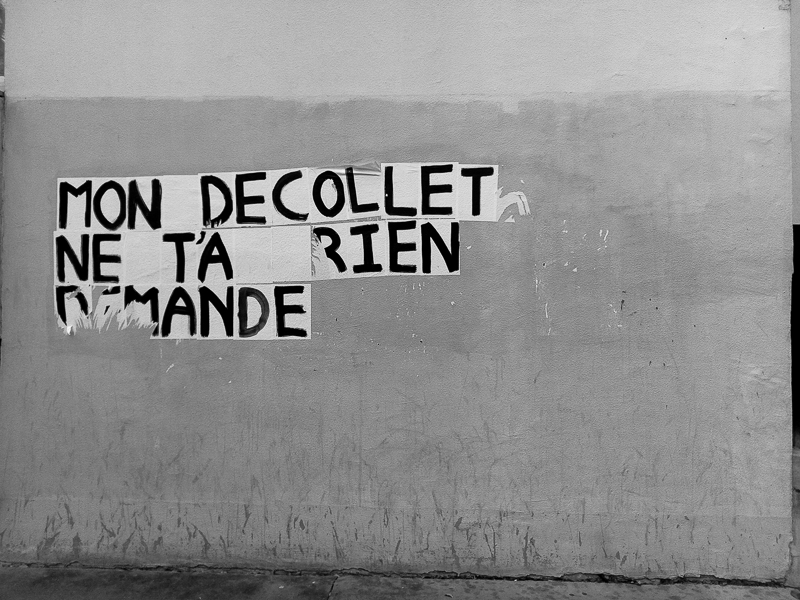 MON DECOLLET
NE T'A RIEN
DEMANDE